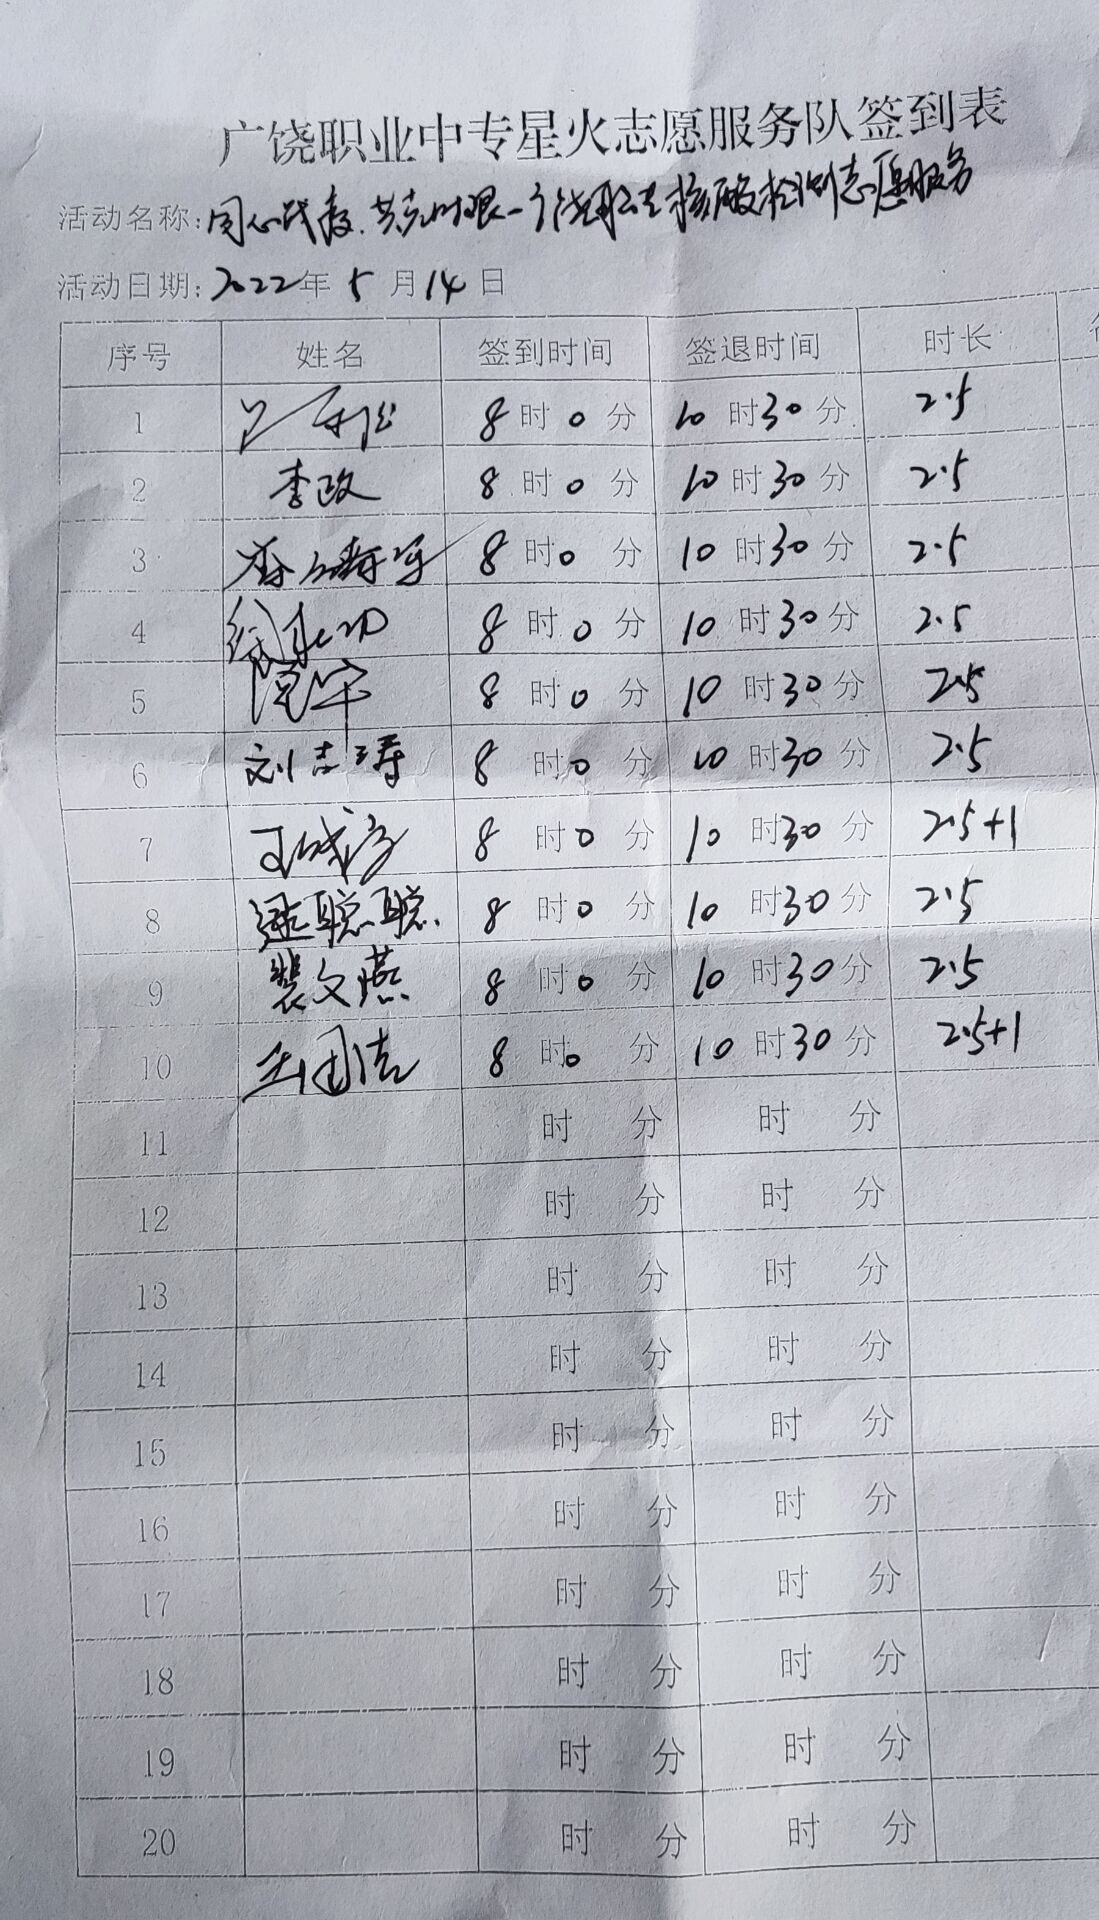 广饶职业中专星火志愿服务队签到表
活动名称:同心战疫.共克时艰—广饶职专核酸检测志愿服务
活动日期:2022年5月14日
序号 姓名 签到时间 签退时间 时长
1 8时0分 10时30分 2.5
2 李政 8时0分 10时30分 2.5
3 8时0分 10时30分 2.5
4 8时0分 10时30分 2.5
5 8时0分 10时30分 2.5
6 刘吉涛 8时0分 10时30分 2.5
7 8时0分 10时30分 2.5+1
8 聪聪 8时0分 10时30分 2.5
9 裴文燕 8时0分 10时30分 2.5
10 8时0分 10时30分 2.5+1
11 时 分 时 分
12 时 分 时 分
13 时 分 时 分
14 时 分 时 分
15 时 分 时 分
16 时 分 时 分
17 时 分 时 分
18 时 分 时 分
19 时 分 时 分
20 时 分 时 分